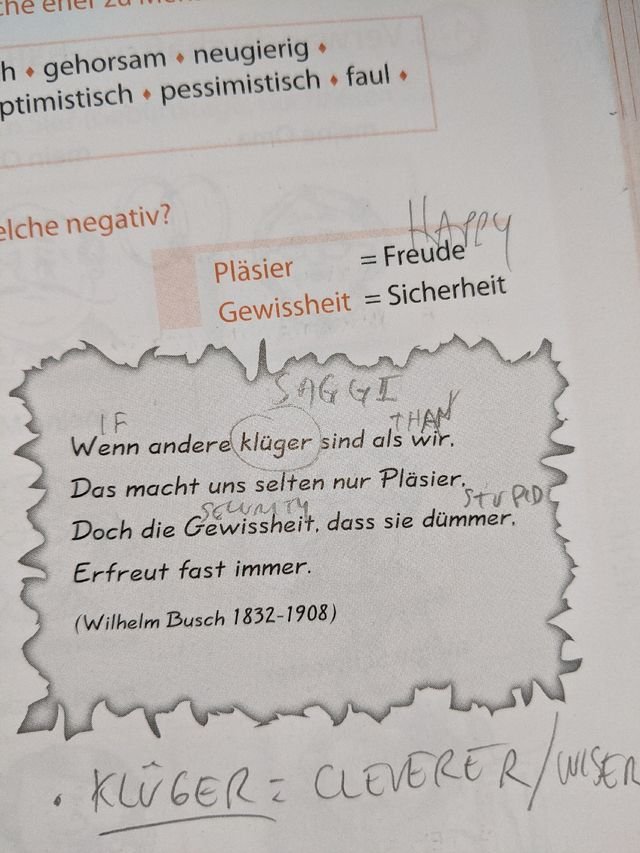 che eher zu
h ♦ gehorsam ♦ neugierig ♦
ptimistisch ♦ pessimistisch ♦ faul ♦
elche negativ?
HAPPY
Pläsier = Freude
Gewissheit = Sicherheit
SAGGI
IF THAN
Wenn andere klüger sind als wir,
Das macht uns selten nur Pläsier,
SECURITY STUPID
Doch die Gewissheit, dass sie dümmer,
Erfreut fast immer.
(Wilhelm Busch 1832-1908)
. KLÜGER = CLEVERER/WISER